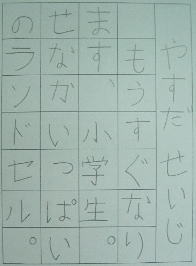 やすだ せいじ
もうすぐなり
ます、小学生。
せなかいっぱい
のラソドセル。